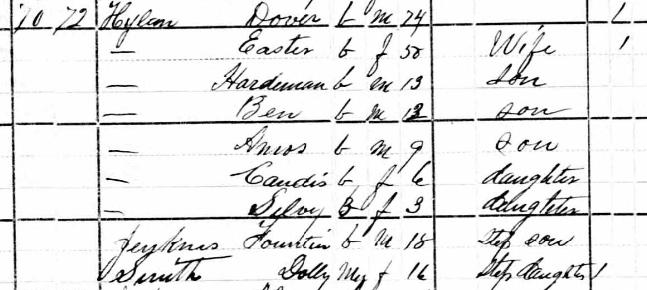 70 72 Hylan Dover b m 74 1
— Easter b f 50 Wife 1
— Hardeman b m 13 son
— Ben b m 12 son
— Amos b m 9 son
— Candis b f 6 daughter
— Silvy B f 3 daughter
Jenkins Fountin b M 18 Step son
Smith Dolly f 16 Step daughter 1